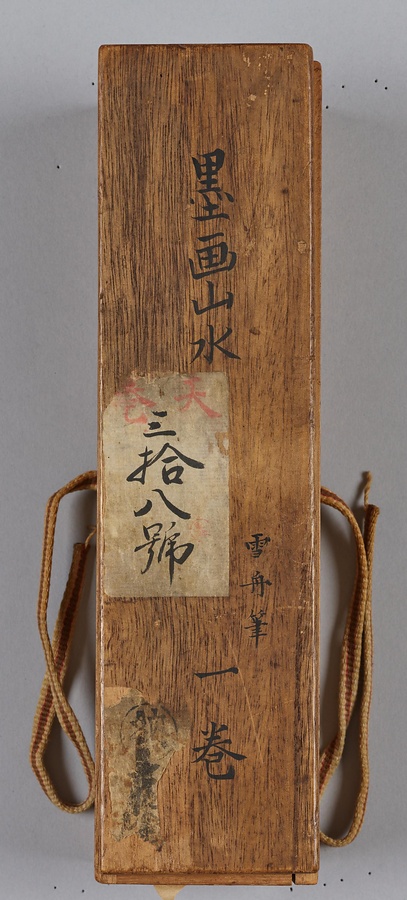 墨画山水
雪舟筆
一巻
天
三拾八號